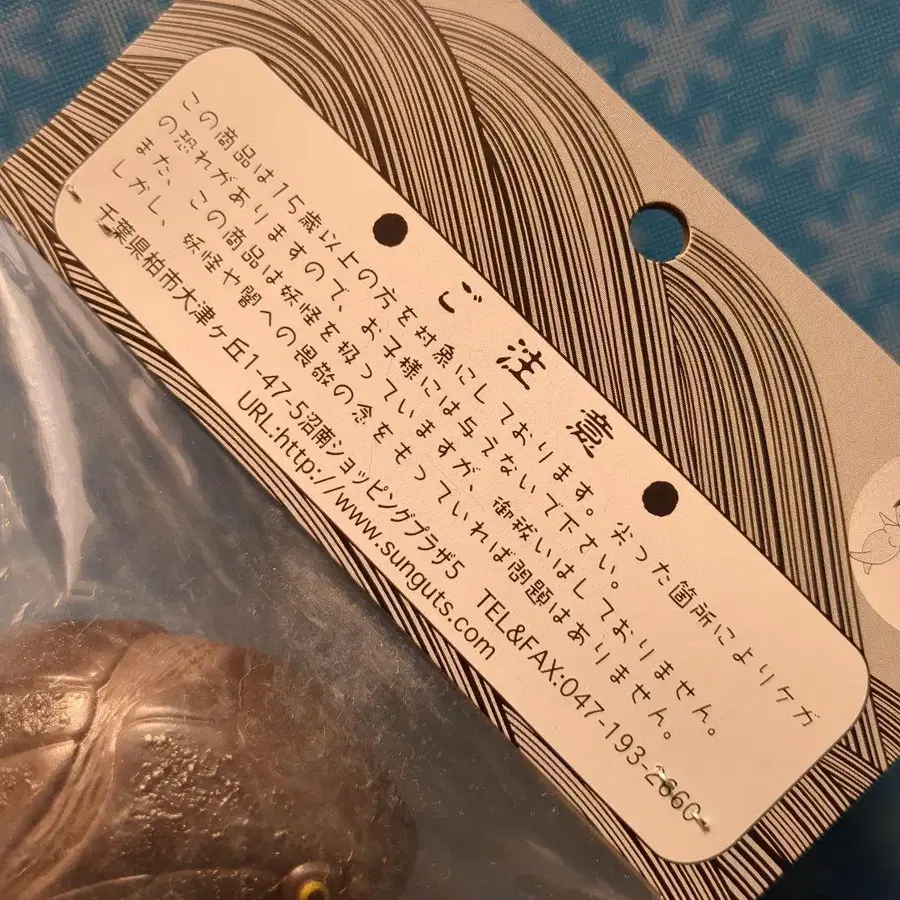 ご注意
この商品は15歳以上の方を対象にしております。尖った箇所によりケガ
の恐れがありますので、お子様には与えないで下さい。
また、この商品は妖怪を扱っていますが、御祓いはしておりません。
しかし、妖怪や闇への畏敬の念をもっていれば問題はありません。
千葉県柏市大津ヶ丘1-47-5沼南ショッピングプラザ5 TEL&FAX:047-193-2660
URL:http://www.sunguts.com